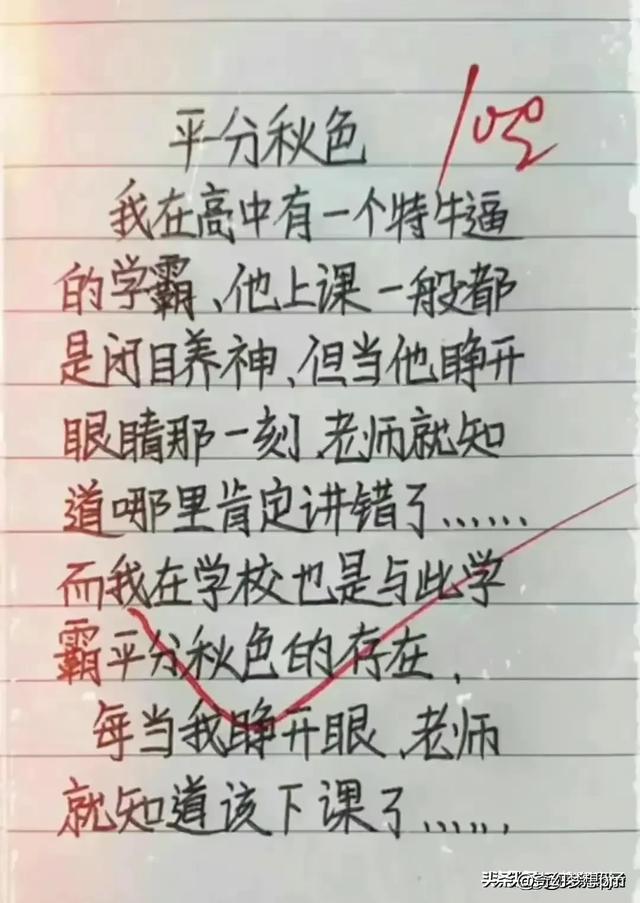 平分秋色
我在高中有一个特牛逼
的学霸、他上课一般都
是闭目养神、但当他睁开
眼睛那一刻、老师就知
道哪里肯定讲错了……
而我在学校也是与此学
霸平分秋色的存在,
每当我睁开眼、老师
就知道该下课了……